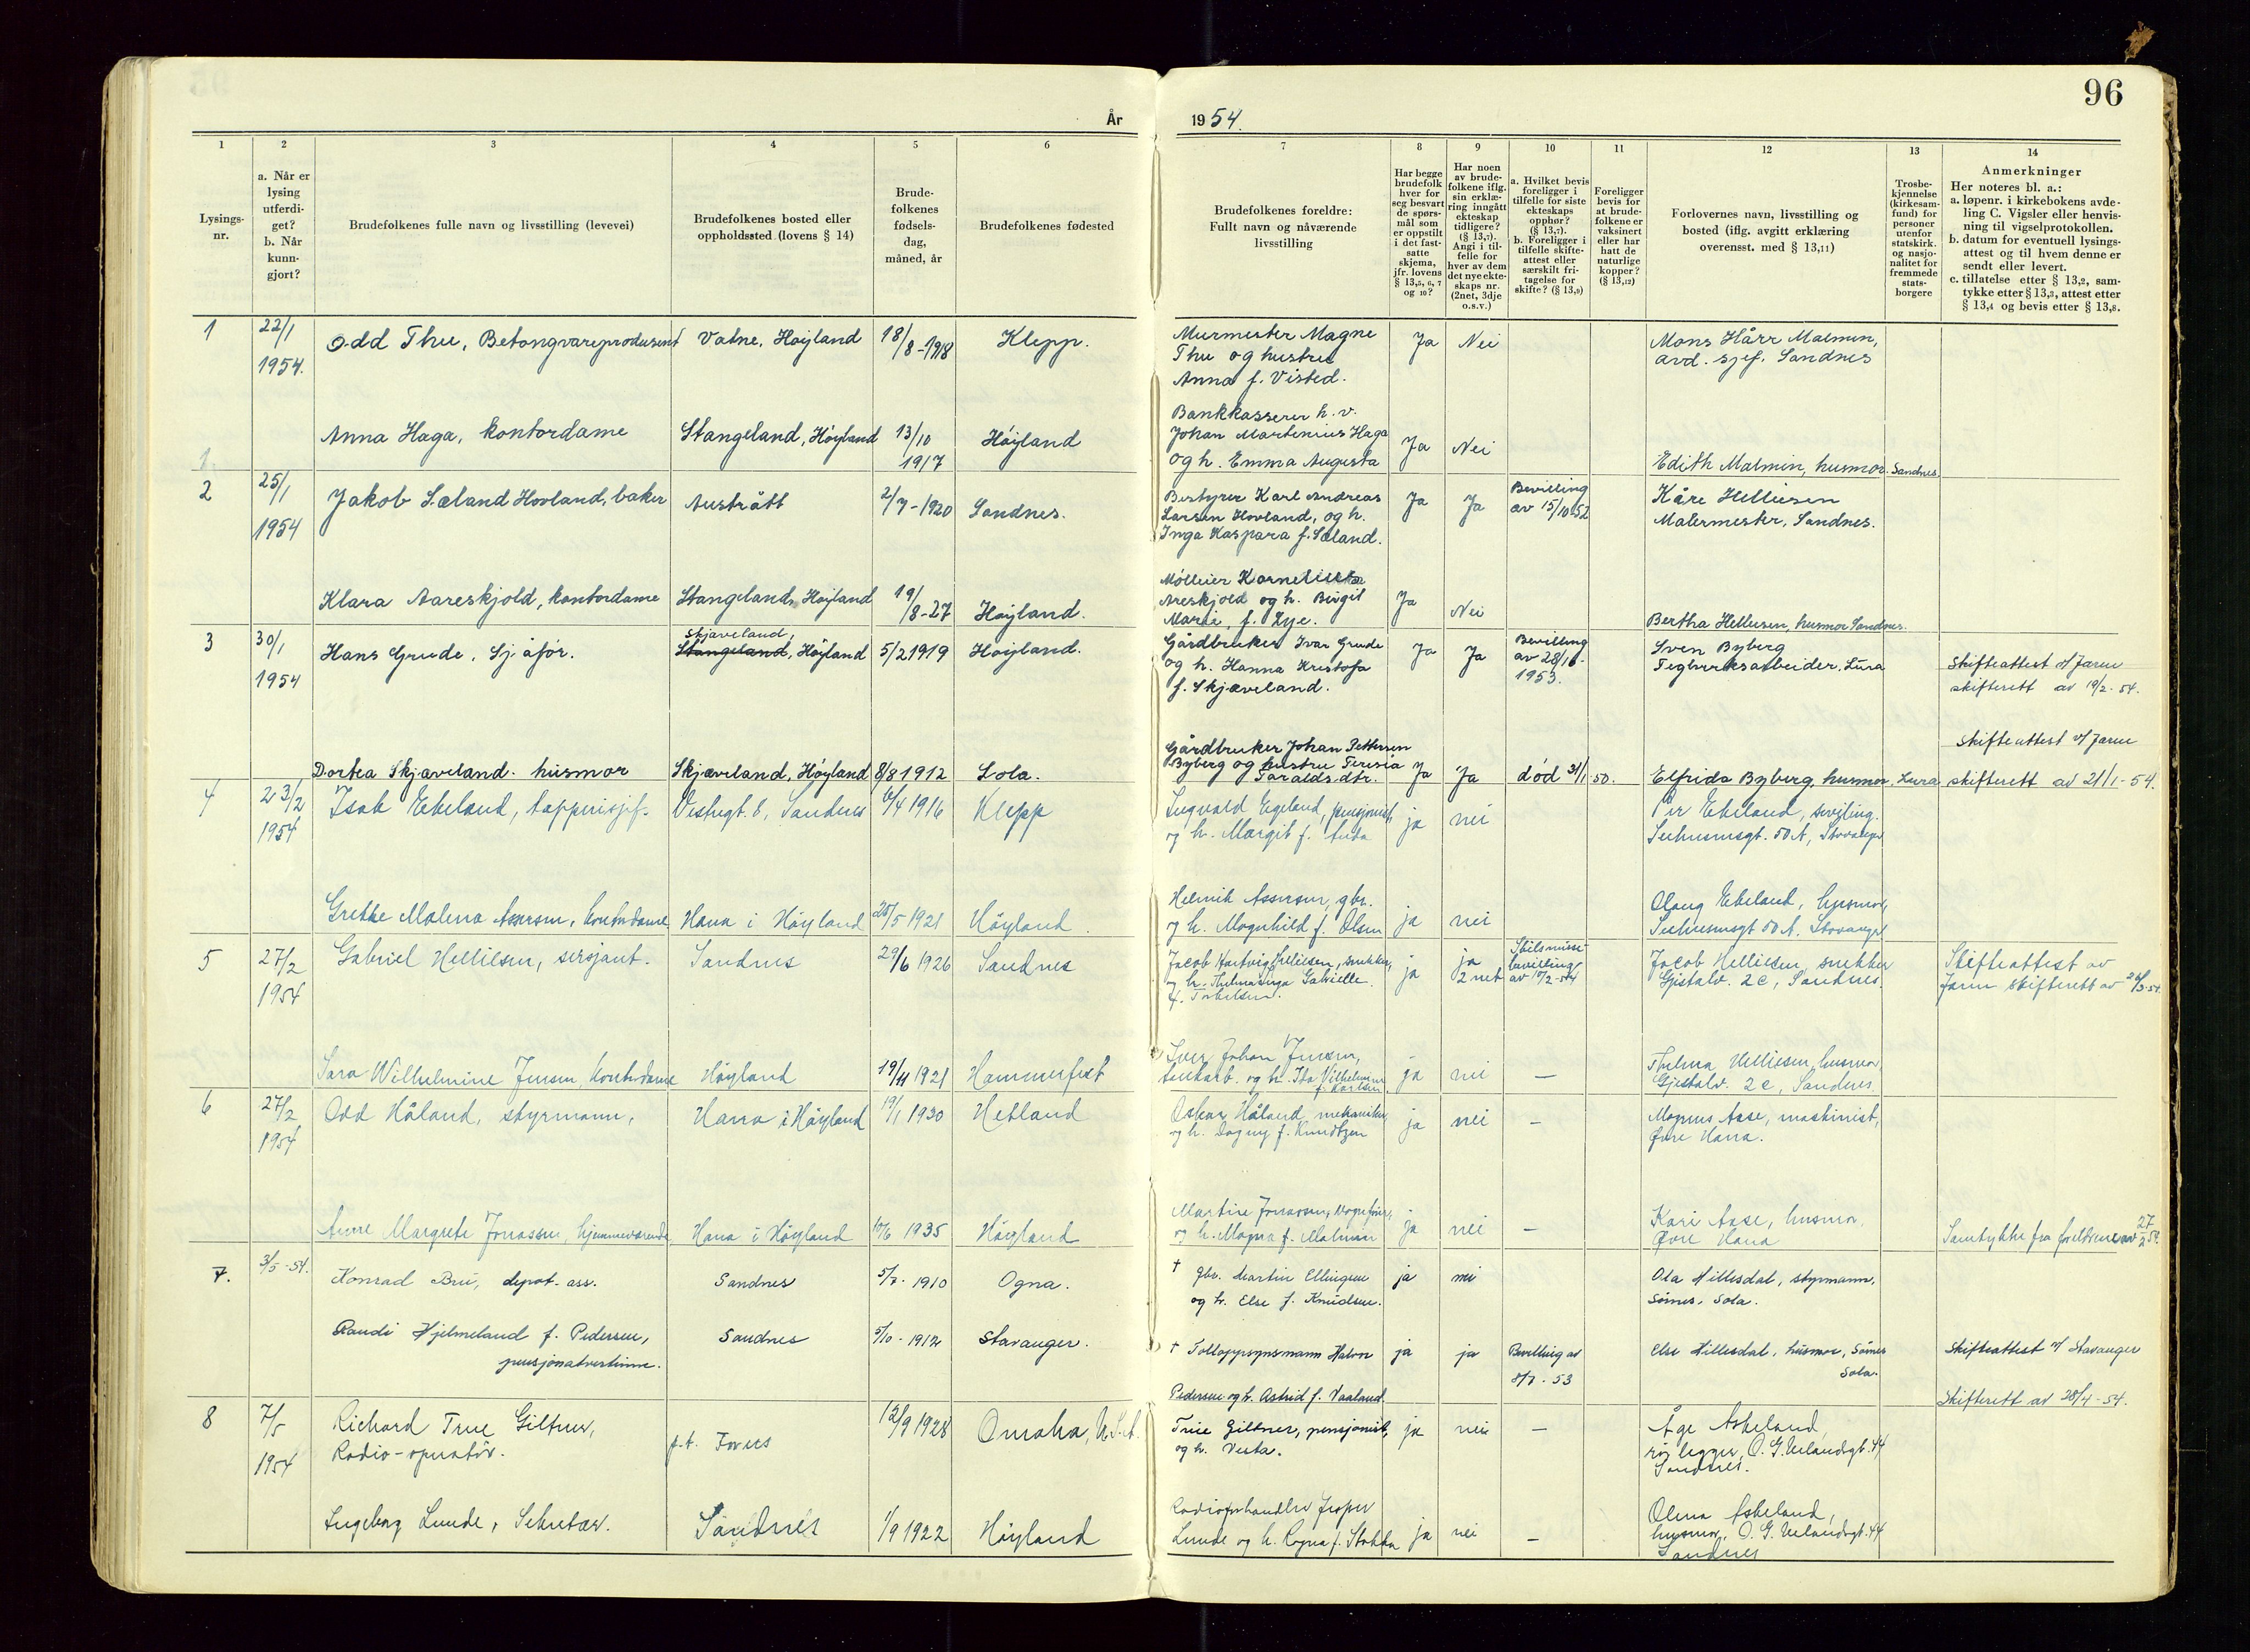 96
År 1954.
1
2
3
4
5
6
7
8
9
10
11
12
13
14
Lysings-
nr.
a. Når er
lysing
utferdi-
get?
b. Når
kunn-
gjort?
Brudefolkenes fulle navn og livsstilling (levevei)
Brudefolkenes bosted eller
oppholdssted (lovens § 14)
Brude-
folkenes
fødsels-
dag,
måned, år
Brudefolkenes fødested
Brudefolkenes foreldre:
Fullt navn og nåværende
livsstilling
Har begge
brudefolk
hver for
seg besvart
de spørs-
mål som
er oppstilt
i det fast-
satte
skjema,
jfr. lovens
§ 13,5, 6, 7
og 10?
Har noen
av brude-
folkene iflg.
sin erklæ-
ring inngått
ekteskap
tidligere?
(§ 13,7).
Angi i til-
felle for
hver av dem
det nye ekte-
skaps nr.
(2net, 3dje
o.s.v.)
a. Hvilket bevis
foreligger i
tilfelle for siste
ekteskaps
opphør?
(§ 13,7).
b. Foreligger i
tilfelle skifte-
attest eller
særskilt fri-
tagelse for
skifte? (§ 13,9)
Foreligger
bevis for
at brude-
folkene er
vaksinert
eller har
hatt de
naturlige
kopper?
(§ 13,12)
Forlovernes navn, livsstilling og
bosted (iflg. avgitt erklæring
overensst. med § 13,11)
Trosbe-
kjennelse
(kirkesam-
fund) for
personer
utenfor
statskirk.
og nasjo-
nalitet for
fremmede
stats-
borgere
Anmerkninger
Her noteres bl. a.:
a. løpenr. i kirkebokens avde-
ling C. Vigsler eller henvis-
ning til vigselprotokollen.
b. datum for eventuell lysings-
attest og til hvem denne er
sendt eller levert.
c. tillatelse etter § 13,2, sam-
tykke etter § 13,3, attest etter
§ 13,4 og bevis etter § 13,8.
1 22/1 1954. Odd Thu, Betongvareprodusent Vatne, Høyland 18/8-1918 Klepp. Murmester Magne Ja Nei Mons Hårr Malmin,
Thu og hustru avd. sjef. Sandnes
Anna f. Visted.
Bankkasserer h.v.
Anna Haga, kontordame Stangeland, Høyland 13/10 1917 Høyland Johan Martinius Haga Ja Nei
1 og h. Emma Augusta Edith Malmin, husmor. Sandnes
2 25/1 1954 Jakob Sæland Hovland, baker Austrått 2/7-1920 Sandnes. Bestyrer Karl Andreas Ja Ja Bevilling Kåre Helliesen
Larsen Hovland, og h. av 15/10 52 Malermester, Sandnes.
Inga Kaspara f. Sæland.
Klara Aareskjold, kontordame Stangeland, Høyland 19/8-27 Høyland. Mølleier
Areskjold og h. Birgit Ja Nei
Marie, f. Lye. Bertha Helliesen, husmor Sandnes.
3 30/1 1954 Hans Grude, Sjåfør. Skjæveland, Stangeland, Høyland 5/2 1919 Høyland. Gårdbruker Ivar Grude Ja Ja Bevilling Sven Byberg
og h. Hanna Kristofa av 28/10- Teglverksarbeider. Lura Skifteattest v/ Jæren
f. Skjæveland. 1953. skifterett av 19/2-54.
Gårdbruker Johan Pettersen Skifteattest v/ Jæren
Dortea Skjæveland. husmor Skjæveland, Høyland 8/8 1912 Sola. Byberg og hustru Teresia
Taralds.dtr. Ja Ja død 31/1 50. Elfrida Byberg, husmor, Lura skifterett av 21/1-54.
4 23/2 1954 Isak Ekeland, tapperisjef. Vestregt. 8, Sandnes 6/4 1916 Klepp Sigvald Egeland, pensjonist, ja nei Per Ekeland, sveiling.
og h. Margit f. Auda 50 A, Stavanger
Grethe Malena Assersen, kontordame Hana i Høyland 25/5 1921 Høyland. Helmik Assersen, gbr. Olaug Ekeland, husmor,
og h. Magnhild f. Olsen ja nei 50 A. Stavanger
5 27/2 1954 Gabriel Helliesen, sersjant. Sandnes 29/6 1926 Sandnes Jacob Hartvig Helliesen, snekker, ja ja 2 net Skilsmisse- Jacob Helliesen, snekker Skifteattest av
og h. Thelma Inga Gabrielle bevilling av 10/2-54 Gjestalv. 2c, Sandnes. Jæren skifterett av 26/3-54.
f. Torkelsen.
Sara Wilhelmine Jensen, kontordame Høyland 19/11 1921 Hammerfest Johan Jensen, Thelma Helliesen, husmor,
og h. Ida Vilhelmine ja nei — Gjestalv. 2c, Sandnes
f. Karlsen
6 27/2 1954 Odd Håland, styrmann, Hana i Høyland 19/1 1930 Hetland Oskar Håland, mekaniker, ja nei — Magnus Aase, maskinist,
og h. Dagny f. Knudtzen Øvre Hana.
Martin Jonassen, Kari Aase, husmor,
Anne Margrete Jonassen, hjemmeværende Hana i Høyland 10/6 1935 Høyland og h. Magna f. Malmin ja nei — Øvre Hana Samtykke fra foreldrene av 27/2 54.
7. 3/5-54. Konrad Bru, depot. ass. Sandnes 5/7. 1910 Ogna. † gbr. Martin Ellingsen ja nei Ola Hillesdal, styrmann,
og h. Else f. Knudsen. Sømes, Sola.
Randi Hjelmeland f. Pedersen, Sandnes 5/10-1912 Stavanger. † Tolloppsynsmann Halvor ja ja Bevilling av Else Hillesdal, husmor, Sømes Skifteattest v/ Stavanger
pensjonatvertinne. 8/7-53 Sola.
Pedersen og h. Astrid f. Vaaland. skifterett av 28/4-54.
8 7/5 1954 Richard True Giltner, p.t. Forus 12/9 1928 Omaha, U.S.A. True Giltner, pensjonist, ja nei — Åge Askeland,
Radio-operatør. og h. Vesta. rørlegger, O. G. Uelandsgt. 44
Sandnes.
Ingeborg Lunde, Sekretær. Sandnes 1/9 1922 Høyland Radioforhandler Jesper Olena Askeland,
Lunde og h. Ragna f. Stokka ja nei — husmor, O. G. Uelandsgt. 44
Sandnes